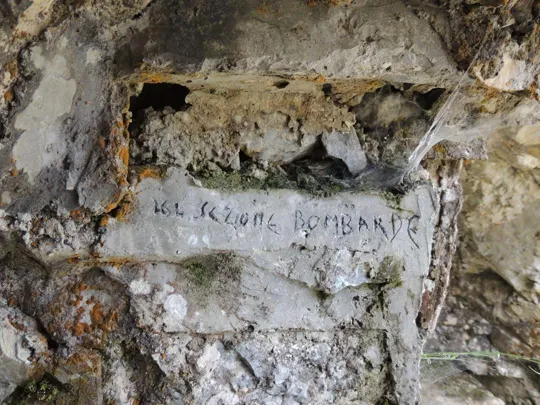 164 SEZIONE BOMBARDE